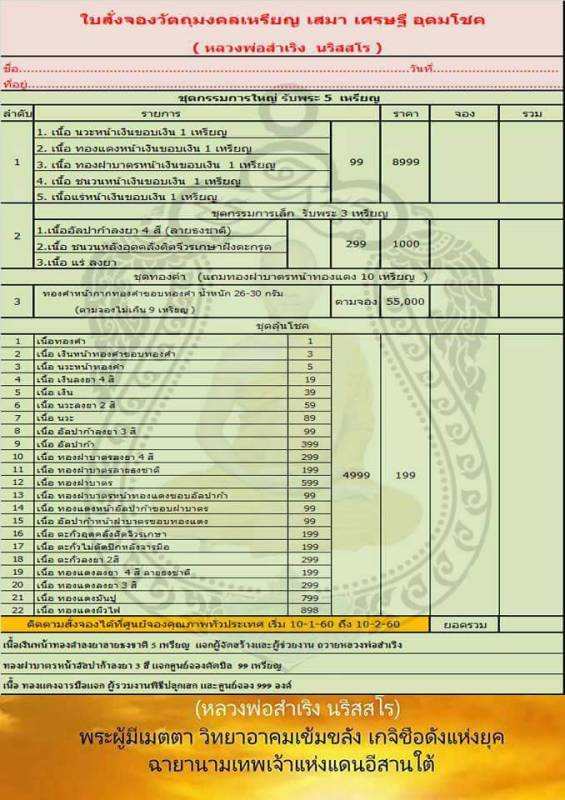 ใบสั่งจองวัตถุมงคลเหรียญ เสมา เศรษฐี อุดมโชค
( หลวงพ่อสำเริง นริสสโร )
ชื่อ.......................................................วันที่...........................
ที่อยู่.......................................................
ชุดกรรมการใหญ่ รับพระ 5 เหรียญ
ลำดับ รายการ ราคา จอง รวม
1 99 8999
1. เนื้อ นวะหน้าเงินขอบเงิน 1 เหรียญ
2. เนื้อ ทองแดงหน้าเงินขอบเงิน 1 เหรียญ
3. เนื้อ ทองฝาบาตรหน้าเงินขอบเงิน 1 เหรียญ
4. เนื้อ ชนวนหน้าเงินขอบเงิน 1 เหรียญ
5. เนื้อแร่หน้าเงินขอบเงิน 1 เหรียญ
ชุดกรรมการเล็ก รับพระ 3 เหรียญ
2 299 1000
1.เนื้ออัลปาก้าลงยา 4 สี (ลายธงชาติ)
2.เนื้อ ชนวนหลังอุดคลั่งติดจีวรเกษาฝังตะกรุด
3.เนื้อ แร่ ลงยา
ชุดทองคำ (แถมทองฝาบาตรหน้าทองแดง 10 เหรียญ )
3 ทองคำหน้ากากทองคำขอบทองคำ น้ำหนัก 26-30 กรัม ตามจอง 55,000
(ตามจองไม่เกิน 9 เหรียญ )
ชุดลุ้นโชค
1 เนื้อทองคำ 1
2 เนื้อ เงินหน้าทองคำขอบทองคำ 3
3 เนื้อ นวะหน้าทองคำ 5
4 เนื้อ เงินลงยา 4 สี 19
5 เนื้อ เงิน 39
6 เนื้อ นวะลงยา 2 สี 59
7 เนื้อ นวะ 89
8 เนื้อ อัลปาก้าลงยา 3 สี 99
9 เนื้อ อัลปาก้า 399
10 เนื้อ ทองฝาบาตรลงยา 4 สี 299
11 เนื้อ ทองฝาบาตรลายธงชาติ 199
4999 199
12 เนื้อ ทองฝาบาตร 599
13 เนื้อ ทองฝาบาตรหน้าทองแดงขอบอัลปาก้า 99
14 เนื้อ ทองแดงหน้าอัลปาก้าขอบฝาบาตร 99
15 เนื้อ อัลปาก้าหน้าฝาบาตรขอบทองแดง 99
16 เนื้อ ตะกั่วอุดคลั่งติดจีวรเกษา 199
17 เนื้อ ตะกั่วไม่ตัดปีกหลังจารมือ 199
18 เนื้อ ตะกั่วลงยา 2สี 299
19 เนื้อ ทองแดงลงยา 4 สี ลายธงชาติ 199
20 เนื้อ ทองแดงลงยา 3 สี 299
21 เนื้อ ทองแดงมันปู 799
22 เนื้อ ทองแดงผิวไฟ 898
ติดตามสั่งจองได้ที่ศูนย์จองคุณภาพทั่วประเทศ เริ่ม 10-1-60 ถึง 10-2-60 ยอดรวม
เนื้อเงินหน้าทองคำลงยาลายธงชาติ 5 เหรียญ แจกผู้จัดสร้างและผู้ช่วยงาน ถวายหลวงพ่อสำเริง
ทองฝาบาตรหน้าอัลปาก้าลงยา 3 สี แจกศูนย์จองตัดบิล 99 เหรียญ
เนื้อ ทองแดงจารมือแจก ผู้ร่วมงานพิธีปลุกเสก และศูนย์จอง 999 องค์
(หลวงพ่อสำเริง นริสสโร)
พระผู้มีเมตตา วิทยาอาคมเข้มขลัง เกจิชื่อดังแห่งยุค
ฉายานามเทพเจ้าแห่งแดนอีสานใต้